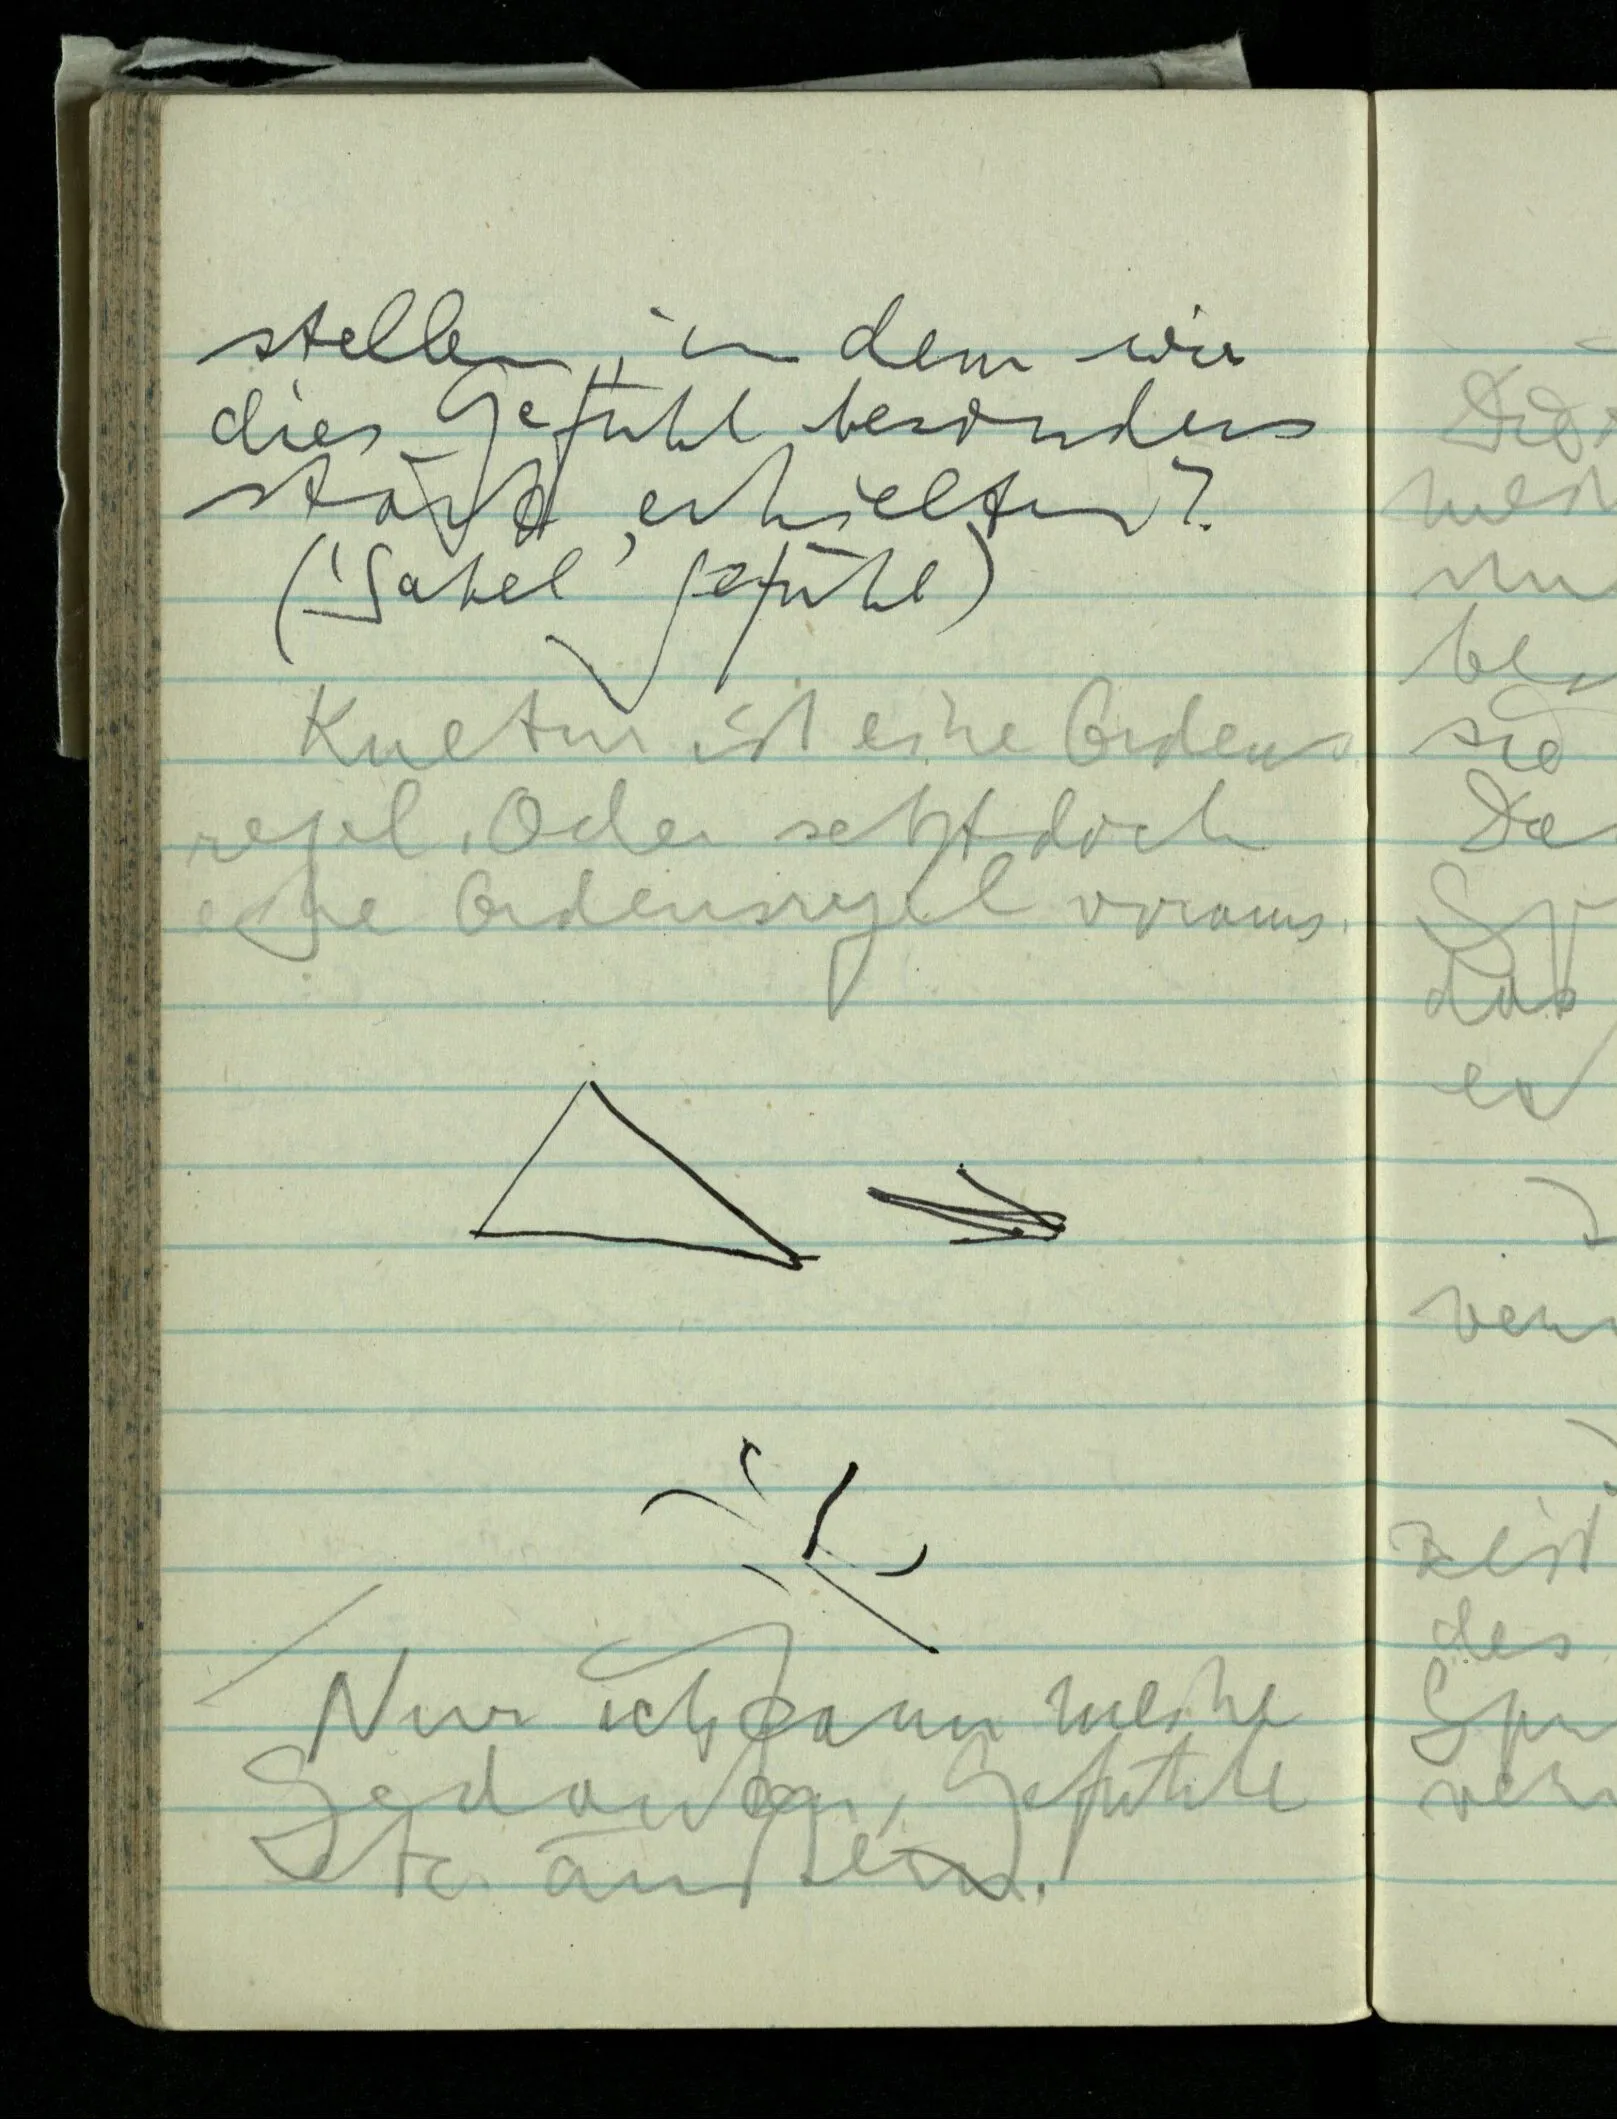 stellen, in dem wir
dies Gefühl besonders
stark erhielten?
('Gabel'gefühl)
Kultur ist eine Ordens
regel. Oder setzt doch
eine Ordensregel voraus.
Nur ich kann meine
Gedanken, Gefühle
etc. äußern.
sie
das
des